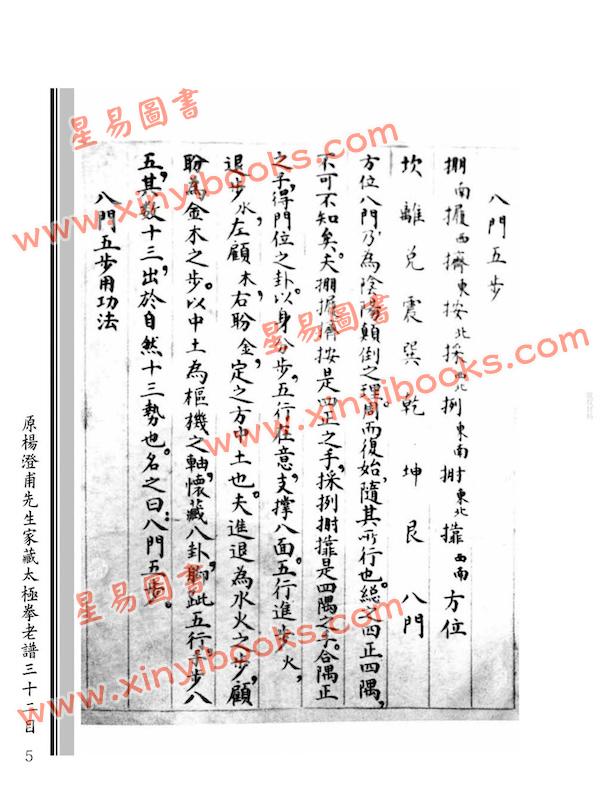 八門五步
掤南 履西 擠東 按北 採西北 挒東南 肘東北 靠西南 方位
坎離兌震巽乾坤艮 八門
方位八門,乃為陰陽顛倒之理,周而復始,隨其所行也。總之四正四隅,
不可不知矣。夫掤履擠按是四正之手,採挒肘靠是四隅之手。合隅正
之手,得門位之卦。以身分步,五行在意,支撐八面。五行進步火,
退步水,左顧木,右盼金,定之方中土也。夫進退為水火之步,顧
盼為金木之步。以中土為樞機之軸,懷藏八卦,腳跐五行,手步八
五,其數十三,出於自然十三勢也。名之曰:八門五步。
八門五步用功法
原楊澄甫先生家藏太極拳老譜三十二目
5
星易圖書
www.xinyibooks.com
星易圖書
www.xinyibooks.com
星易圖書
www.xinyibooks.com
星易圖書
www.xinyibooks.com